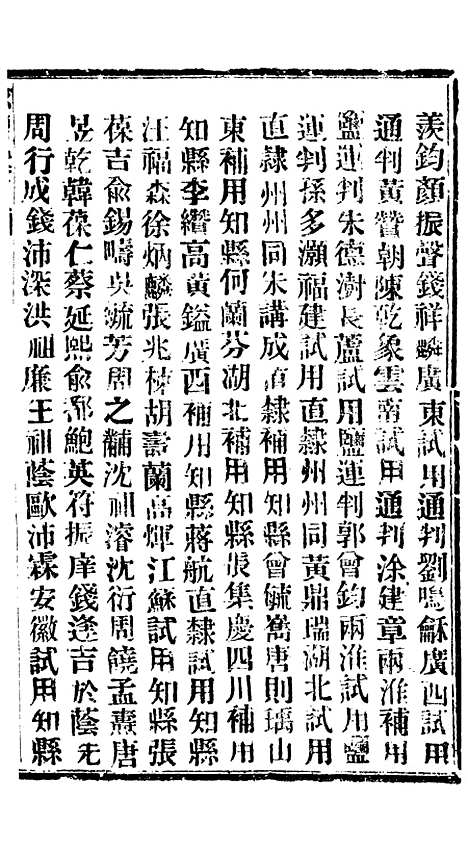 羨鈞顏振聲錢祥麟廣東試用通判劉鳴龢廣西試用
通判黃贊朝陳乾象雲南試用通判涂建章兩淮補用
鹽運判朱德澍長蘆試用鹽運判郭曾鈞兩淮試用鹽
運判孫多灝福建試用直隸州州同黃鼎瑞湖北試用
直隸州州同朱講成直隸補用知縣曾毓嶲唐則瑀山
東補用知縣何蘭芬湖北補用知縣張集慶四川補用
知縣李縉高黃鎰廣西補用知縣蔣航直隸試用知縣
汪福森徐炳麟張兆棶胡壽蘭高煇江蘇試用知縣張
葆吉俞錫疇吳毓芳周之黼沈祖濬沈衍周饒孟燾唐
昱乾韓葆仁蔡延熙俞鄹鮑英符振庠錢逢吉於蔭尢
周行成錢沛深洪祖廉王祖蔭歐沛霖安徽試用知縣